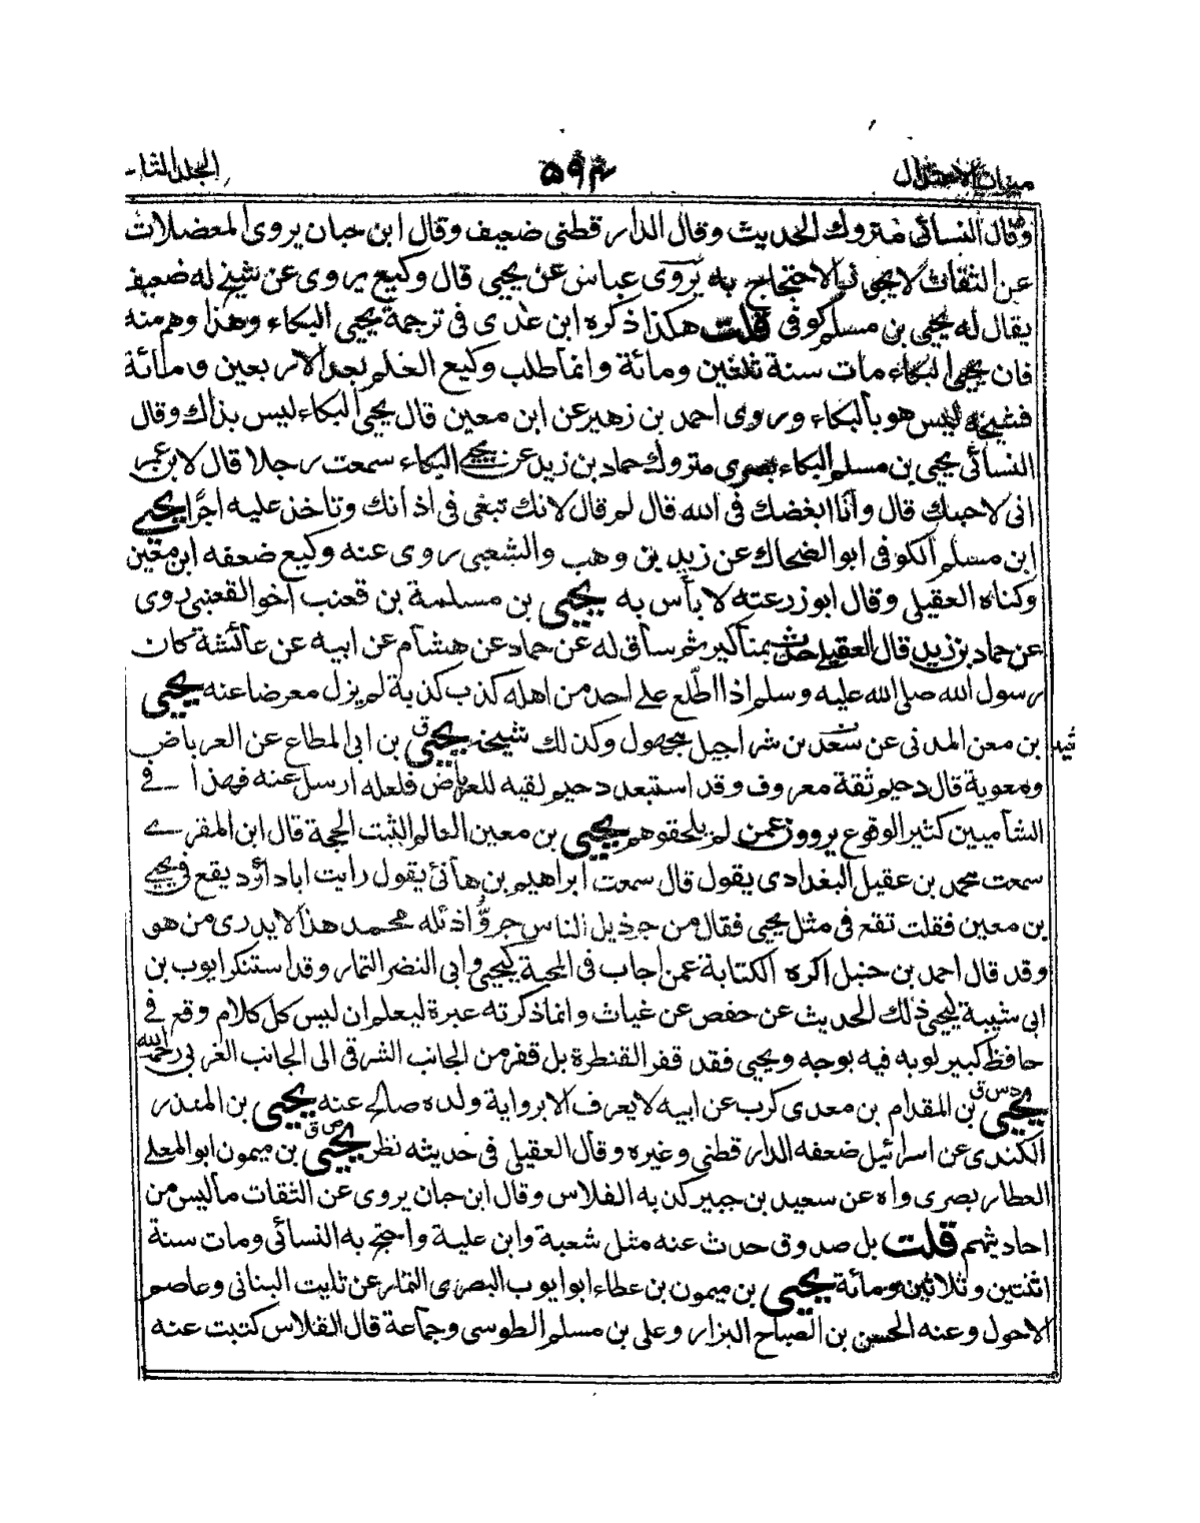 ميزان الاعتدال
٥٩٣
المجلد الثا
وقال النسائى متروك الحديث وقال الدارقطنى ضعيف وقال ابن حبان يروى المعضلات
عن الثقات لا يجوز الاحتجاج به يروى عباس عن يحيى قال وكيع يروى عن شيخ له ضعيف
يقال له يحيى بن مسلم كوفى قلت هكذا ذكره ابن عدى فى ترجمة يحيى البكاء وهذا وهم منه
فان يحيى البكاء مات سنة ثلثين ومائة وانما طلب وكيع العلم بعد الاربعين ومائة
فشيخه ليس هو بالبكاء وروى احمد بن زهير عن ابن معين قال يحيى البكاء ليس بذاك وقال
النسائى يحيى بن مسلم البكاء بصرى متروك حماد بن زيد عن يحيى البكاء سمعت رجلا قال لابن عمر
انى لاحبك قال وانا ابغضك فى الله قال لم قال لانك تبغى فى اذانك وتاخذ عليه اجرًا يحيى
ابن مسلم الكوفى ابو الضحاك عن زيد بن وهب والشعبى روى عنه وكيع ضعفه ابن معين
وكناه العقيلى وقال ابو زرعته لا بأس به يحيى بن مسلمة بن قعنب اخو القعنبى روى
عن حماد بن زيد قال العقيلے حدث بمناكير ثم ساق له عن حماد عن هشام عن ابيه عن عائشة كان
رسول الله صلى الله عليه وسلم اذا اطّلع علے احد من اهله كذب كذبة لم يزل معرضا عنه يحيى
بن معن المدنى عن سعد بن شراحيل مجهول وكذلك شيخه يحيى ق بن ابى المطاع عن العرباض
ومعوية قال دحيم ثقة معروف وقد استبعد دحيم لقيه للعرباض فلعله ارسل عنه فهذا فے
الشاميين كثير الوقوع يروون عمن لم يلحقوهم يحيى بن معين العالم الثبت الحجة قال ابن المقرے
سمعت محمد بن عقيل البغدادى يقول قال سمعت ابراهيم بن هانئ يقول رايت اباداؤد يقع فى يحيى
بن معين فقلت تقع فى مثل يحيى فقال من جر ذيل الناس جروُّا ذيله محمد هذا لا يدرى من هو
وقد قال احمد بن حنبل اكره الكتابة عمن اجاب فى المحبة كيحيى وابى النضر التمار وقد استنكر ايوب بن
ابى شيبة ليحيى ذلك الحديث عن حفص عن غياث وانما ذكرته عبرة ليعلم ان ليس كل كلام وقع فى
حافظ كبير لوبه فيه بوجه ويحيى فقد قفز القنطرة بل قفز من الجانب الشرقى الى الجانب الغربى رحمه الله
يحيى دس ق بن المقدام بن معدى كرب عن ابيه لا يعرف الا برواية ولده صالے عنه يحيى بن المنذر
الكندى عن اسرائيل ضعفه الدارقطنى وغيره وقال العقيلى فى حديثه نظر يحيى ص ق بن ميمون ابو المعلے
العطار بصرى واه عن سعيد بن جبير كذبه الفلاس وقال ابن حبان يروى عن الثقات ما ليس من
احاديثهم قلت بل صدوق حدث عنه مثل شعبة وابن علية واحتج به النسائى ومات سنة
اثنتين وثلاثين ومائة يحيى بن ميمون بن عطاء ابو ايوب البصرى التمار عن ثابت البنانى وعاصم
الاحول وعنه الحسن بن الصباح البزار وعلى بن مسلم الطوسى وجماعة قال الفلاس كتبت عنه